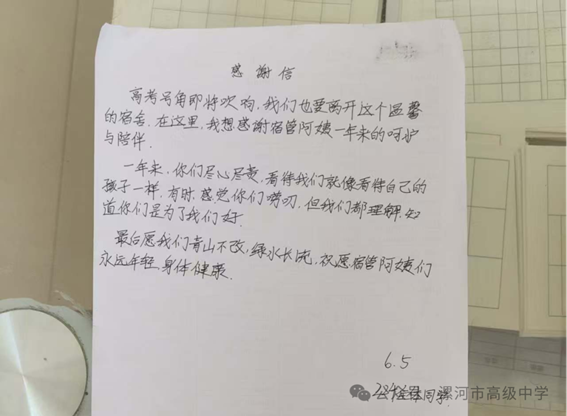 感谢信
高考号角即将吹响,我们也要离开这个温馨
的宿舍.在这里,我想感谢宿管阿姨一年来的呵护
与陪伴.
一年来,你们尽心尽责,看待我们就像看待自己的
孩子一样.有时,感觉你们唠叨.但我们都理解,知
道你们是为了我们好.
最后愿我们青山不改,绿水长流,祝愿宿管阿姨们
永远年轻,身体健康.
6.5
全体同学
漯河市高级中学